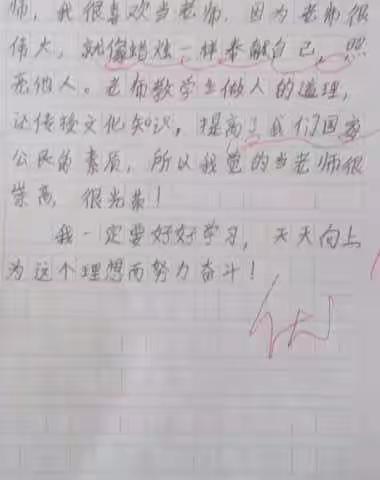 师，我很喜欢当老师，因为老师很
伟大，就像蜡烛一样奉献自己，照
亮他人。老师教学生做人的道理，
还传授文化知识，提高了我们国家
公民的素质，所以我觉的当老师很
崇高，很光荣！
我一定要好好学习，天天向上
为这个理想而努力奋斗！
优